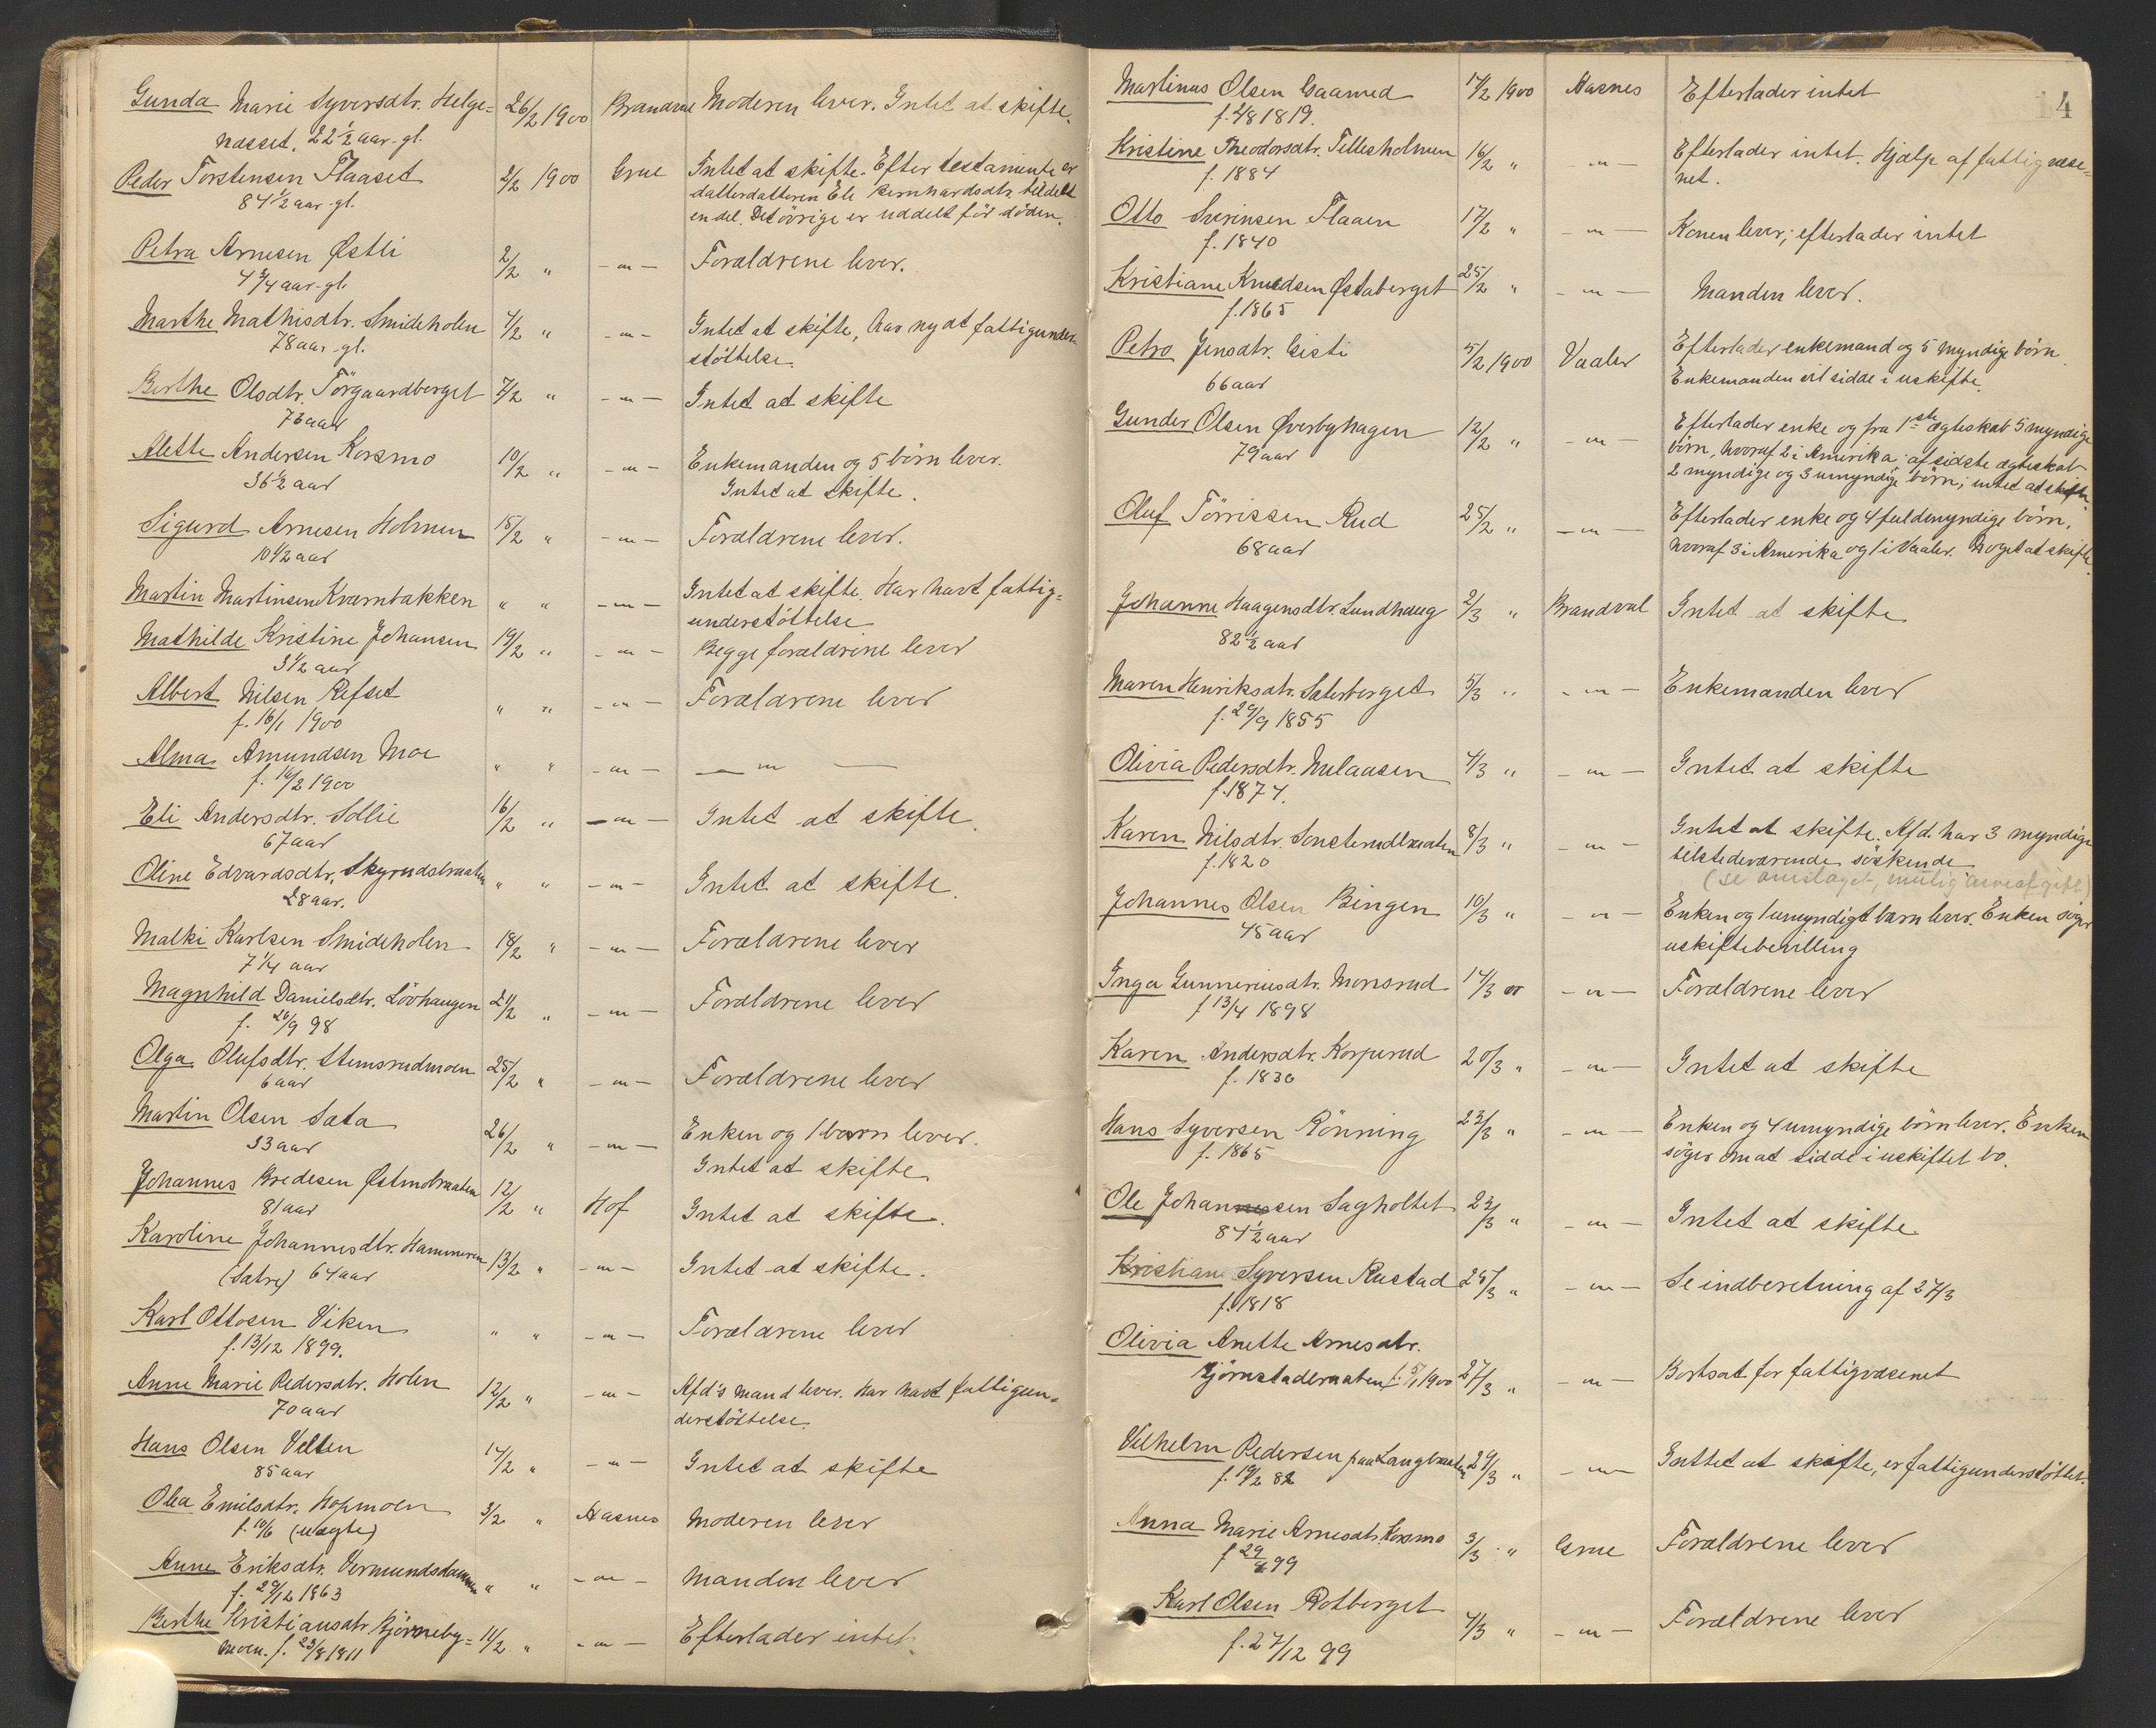 Gunda Marie Syversdtr. Helge= 26/2 1900 Brandval Moderen lever. Intet at skifte.
næsset. 22 1/2 aar gl.
Peder Torstensen Flaaset 2/2 1900 Grue Intet at skifte. Efter testamente er
84 1/2 aar gl. datterdatteren Eli Bernhardsdtr. tildelt
en del. Det övrige er uddelt för döden.
Petra Arnesen Østli 2/2 " - " - Forældrene lever.
4 3/4 aar gl.
Marthe Mathisdtr. Smideholen 4/2 " - " - Intet at skifte, har nydt fattigunder-
78 aar gl. stöttelse.
Berthe Olsdtr. Törgaardberget 7/2 " - " - Intet at skifte
76 aar
Alette Andersen Korsmo 10/2 " - " - Enkemanden og 5 börn lever.
36 1/2 aar Intet at skifte.
Sigurd Arnesen Holmen 15/2 " - " - Forældrene lever.
10 1/2 aar
Martin Martinsen Kvernbakken " " - " - Intet at skifte. Har havt fattig=
understöttelse
Mathilde Kristine Johansen 19/2 " - " - Begge forældrene lever
3 1/2 aar
Albert Nilsen Refset " " - " - Forældrene lever
f. 16/1 1900
Alma Amundsen Moe " " - " - — " —
f. 16/2 1900
Eli Andersdtr. Sollie 16/2 " - " - Intet at skifte.
67 aar
Oline Edvardsdtr. Skyrudsbraaten " " - " - Intet at skifte.
28 aar.
Malki Karlsen Smideholen 18/2 " - " - Forældrene lever
7 1/4 aar
Magnhild Danielsdtr. Lövhaugen 21/2 " - " - Forældrene lever
f. 26/9 98
Olga Olufsdtr. Stemsrudmoen 25/2 " - " - Forældrene lever
6 aar
Martin Olsen Sata 26/2 " - " - Enken og 1 barn lever.
33 aar Intet at skifte
Johannes Bredesen Østmobraaten 12/2 " Hof Intet at skifte.
81 aar
Karoline Johannesdtr. Hammeren 13/2 " - " - Intet at skifte.
(Satre) 64 aar
Karl Ottosen Viken " " - " - Forældrene lever
f. 13/12 1899.
Anne Marie Pedersdtr. Holen 12/2 " - " - Afd's mand lever. Har havt fattigun-
70 aar derstöttelse.
Hans Olsen Velten 14/2 " - " - Intet at skifte
85 aar
Olea Emilsdtr. Hopmoen 3/2 " Aasnes Moderen lever
f. 10/6 (uægte)
Anne Eriksdtr. Vermundsdammen " " - " - Manden lever
f. 29/12 1863
Berthe Kristiansdtr. Bjørneby= 11/2 " - " - Efterlader intet.
moen. f. 23/8 1811
14
Martinus Olsen Gaamed 17/2 1900 Aasnes Efterlader intet
f. 4/8 1819.
Kristine Theodorsdtr. Tellesholmen 16/2 " - " - Efterlader intet. Hjælp af fattigvæse-
f. 1884 net.
Otto Surinsen Flaaen 17/2 " - " - Konen lever; efterlader intet
f. 1840
Kristiane Knudsen Østaberget 25/2 " - " - Manden lever.
f. 1865
Petro Jensdtr. Gisti 5/2 1900 Vaaler Efterlader enkemand og 5 myndige börn
66 aar Enkemanden vil sidde i uskifte.
Gunder Olsen Øverbyhagen 12/2 " - " - Efterlader enke og fra 1ste ægteskab 5 myndige
79 aar börn, hvoraf 2 i Amerika; af sidste ægteskab
2 myndige og 3 umyndige börn; intet at skifte.
Oluf Törrissen Rud 25/2 " - " - Efterlader enke og 4 fuldmyndige börn,
68 aar hvoraf 3 i Amerika og 1 i Vaaler. Noget at skifte.
Johanne Haagensdtr. Lundhaug 2/3 " Brandval Intet at skifte
82 1/2 aar
Maren Henriksdtr. Sæterberget 5/3 " - " - Enkemanden lever
f. 29/9 1855
Olivia Pedersdtr. Melaasen 4/3 " - " - Intet at skifte
f. 1874.
Karen Nilsdtr. Sonsterudbraaten 8/3 " - " - Intet at skifte. Afd. har 3 myndige
f. 1820 tilstedeværende söskende
(se omslaget, mulig arveafgift)
Johannes Olsen Bingen 10/3 " - " - Enken og 1 umyndigt barn lever. Enken söger
45 aar uskiftebevilling
Inga Gunneriusdtr. Monsrud 14/3 00 - " - Forældrene lever
f 13/4 1898
Karen Andersdtr. Korperud 20/3 " - " - Intet at skifte
f. 1830
Hans Syversen Rönning 23/3 " - " - Enken og 4 umyndige börn lever. Enken
f. 1865 söger om at sidde i uskiftet bo.
Ole Johannessen Sagholtet 23/3 " - " - Intet at skifte
84 1/2 aar
Kristian Syversen Rustad 25/3 " - " - Se indberetning af 27/3
f. 1818
Olivia Anette Arnesdtr.
Bjørnstadbraaten f. 5/1 1900 27/3 " - " - Bortsat for fattigvæsenet
Vilhelm Pedersen paa Langbraaten 29/3 " - " - Inttet at skifte, er fattigunderstöttet.
f. 19/2 82
Anna Marie Arnesdtr. Korsmo 3/3 " Grue Forældrene lever
f 29/4 99
Karl Olsen Rotberget 4/3 " - " - Forældrene lever
f. 27/12 99